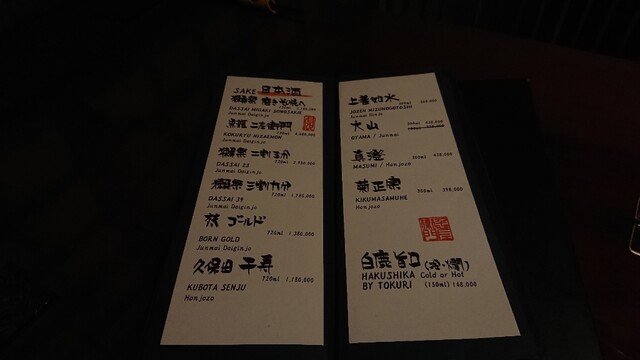 SAKE 日本酒
獺祭 磨きその先へ
DASSAI MIGAKI SONOSAKIE
Junmai Daiginjo
黒龍 二左衛門
KOKURYO NIZAEMON
Junmai Daiginjo
獺祭 二割三分
720ml
DASSAI 23
Junmai Daiginjo
獺祭 三割九分
720ml 1,780,000
DASSAI 39
Junmai Daiginjo
梵 ゴールド
720ml 1,380,000
BORN GOLD
Junmai Daiginjo
久保田 千寿
720ml 1,180,000
KUBOTA SENJU
Honjozo
上善如水
300ml
JOZEN MIZUNOGOTOSHI
Junmai Ginjo
大山
300ml
OYAMA / Junmai
真澄
300ml 458,000
MASUMI / Honjozo
菊正宗
300ml 398,000
KIKUMASAMUNE
Honjozo
白鹿 旨口 (冷・燗)
HAKUSHIKA Cold or Hot
BY TOKURI (150ml) 148,000